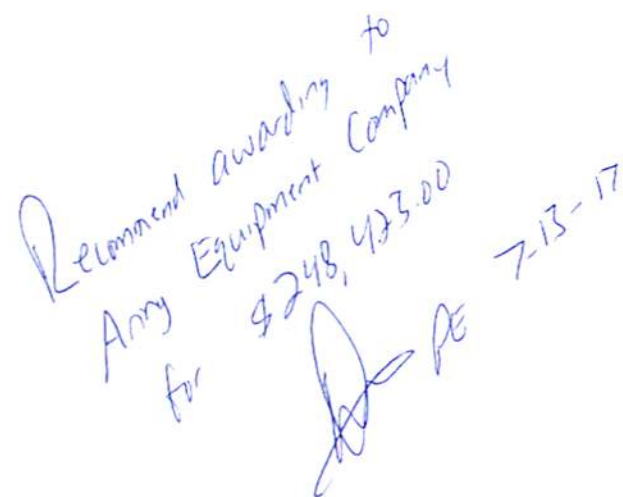 Recommend awarding to
Equipment Company
for $248,423.00
PE 7-13-17